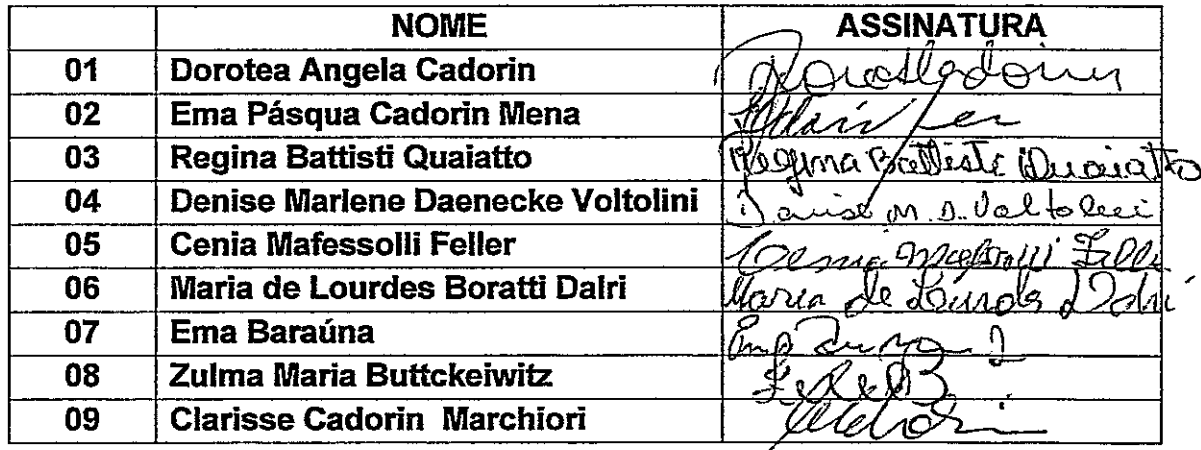 NOME ASSINATURA
01 Dorotea Angela Cadorin
02 Ema Pásqua Cadorin Mena
03 Regina Battisti Quaiatto Regina Battisti Quaiatto
04 Denise Marlene Daenecke Voltolini Denise M. D. Voltolini
05 Cenia Mafessolli Feller Cenia Mafessolli Feller
06 Maria de Lourdes Boratti Dalri Maria de Lourdes Dalri
07 Ema Baraúna
08 Zulma Maria Buttckeiwitz
09 Clarisse Cadorin Marchiori